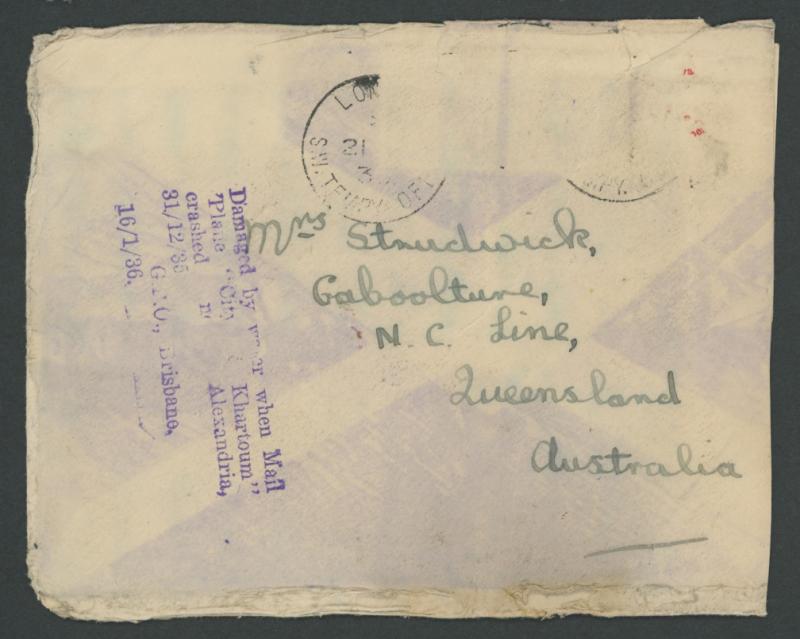 LON
21
S.W.1. TEMPY. OFF
MPY.
Mrs Strudwick,
Caboolture,
N. C. Line,
Queensland
Australia
Damaged by w er when Mail
'Plane "City Khartoum"
crashed Alexandria,
31/12/35
G.P.O., Brisbane,
16/1/36.